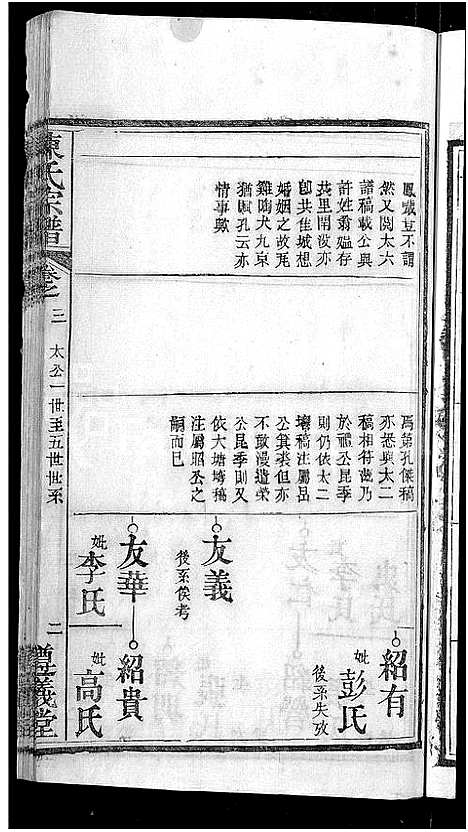 陳氏宗譜
卷之三
太公一世至五世世系
二
鳳噦豈不謂
然又閱太六
譜稿載公與
許姓翁媼存
英里開沒亦
卽共佳城想
婚姻之故厖
雞鳴犬九京
猶
孔云亦
情事歟
馮第孔傑稿
亦悉與太二
稿相符茲乃
於祁公昆季
則仍依太二
壞稿注屬呂
公冀裘但亦
不敢漫遣榮
公昆季則又
依大塘壪稿
注屬昭公之
嗣而已
紹有
妣彭氏
後系失攷
友義
後系俟考
友華
妣李氏
紹貴
妣高氏
義堂